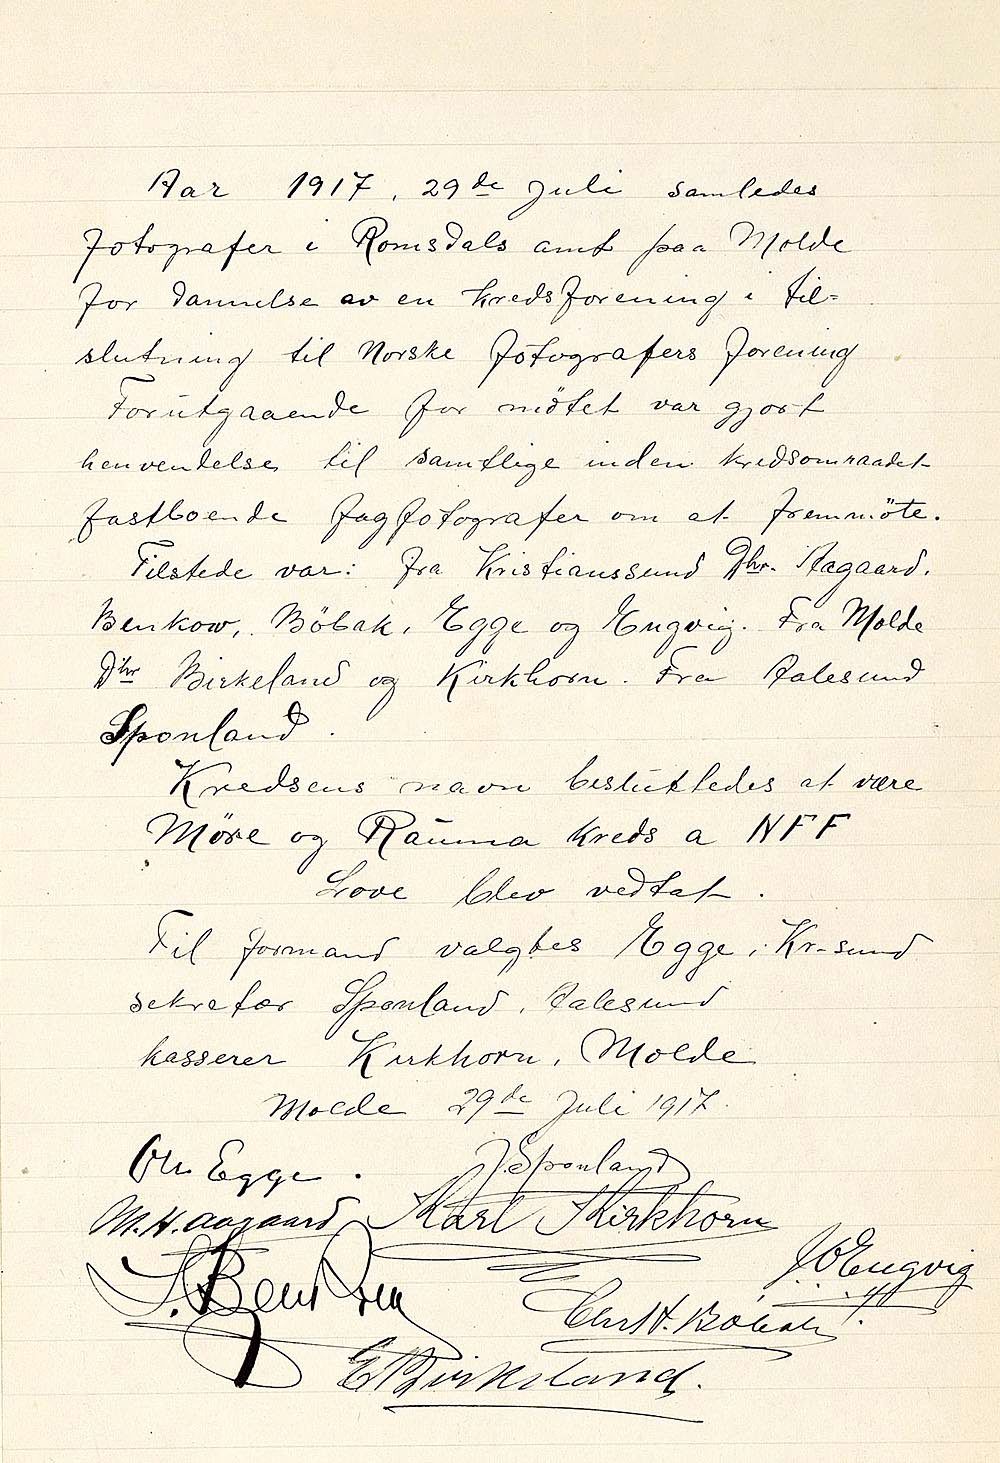 Aar 1917, 29de Juli samledes
fotografer i Romsdals amt paa Molde
for dannelse av en kredsforening i til-
slutning til Norske fotografers forening
Forutgaaende for mötet var gjort
henvendelse til samtlige inden kredsomraadet
fastboende fagfotografer om at fremmöte.
Tilstede var: fra Kristianssund Dhr. Aagaard,
Benkow, Böbak, Egge og Engvig. Fra Molde
Dhr Birkeland og Kirkhorn. Fra Aalesund
Sponland.
Kredsens navn besluttedes at være
Möre og Rauma kreds a NFF
Love blev vedtat.
Til formand valgtes Egge, Kr-sund
sekretær Sponland, Aalesund
kasserer Kirkhorn, Molde
Molde 29de Juli 1917.
Ole Egge. J. Sponland
M. H. Aagaard Karl Kirkhorn
Engvig
Benkow
H. Böbak
E Birkeland.